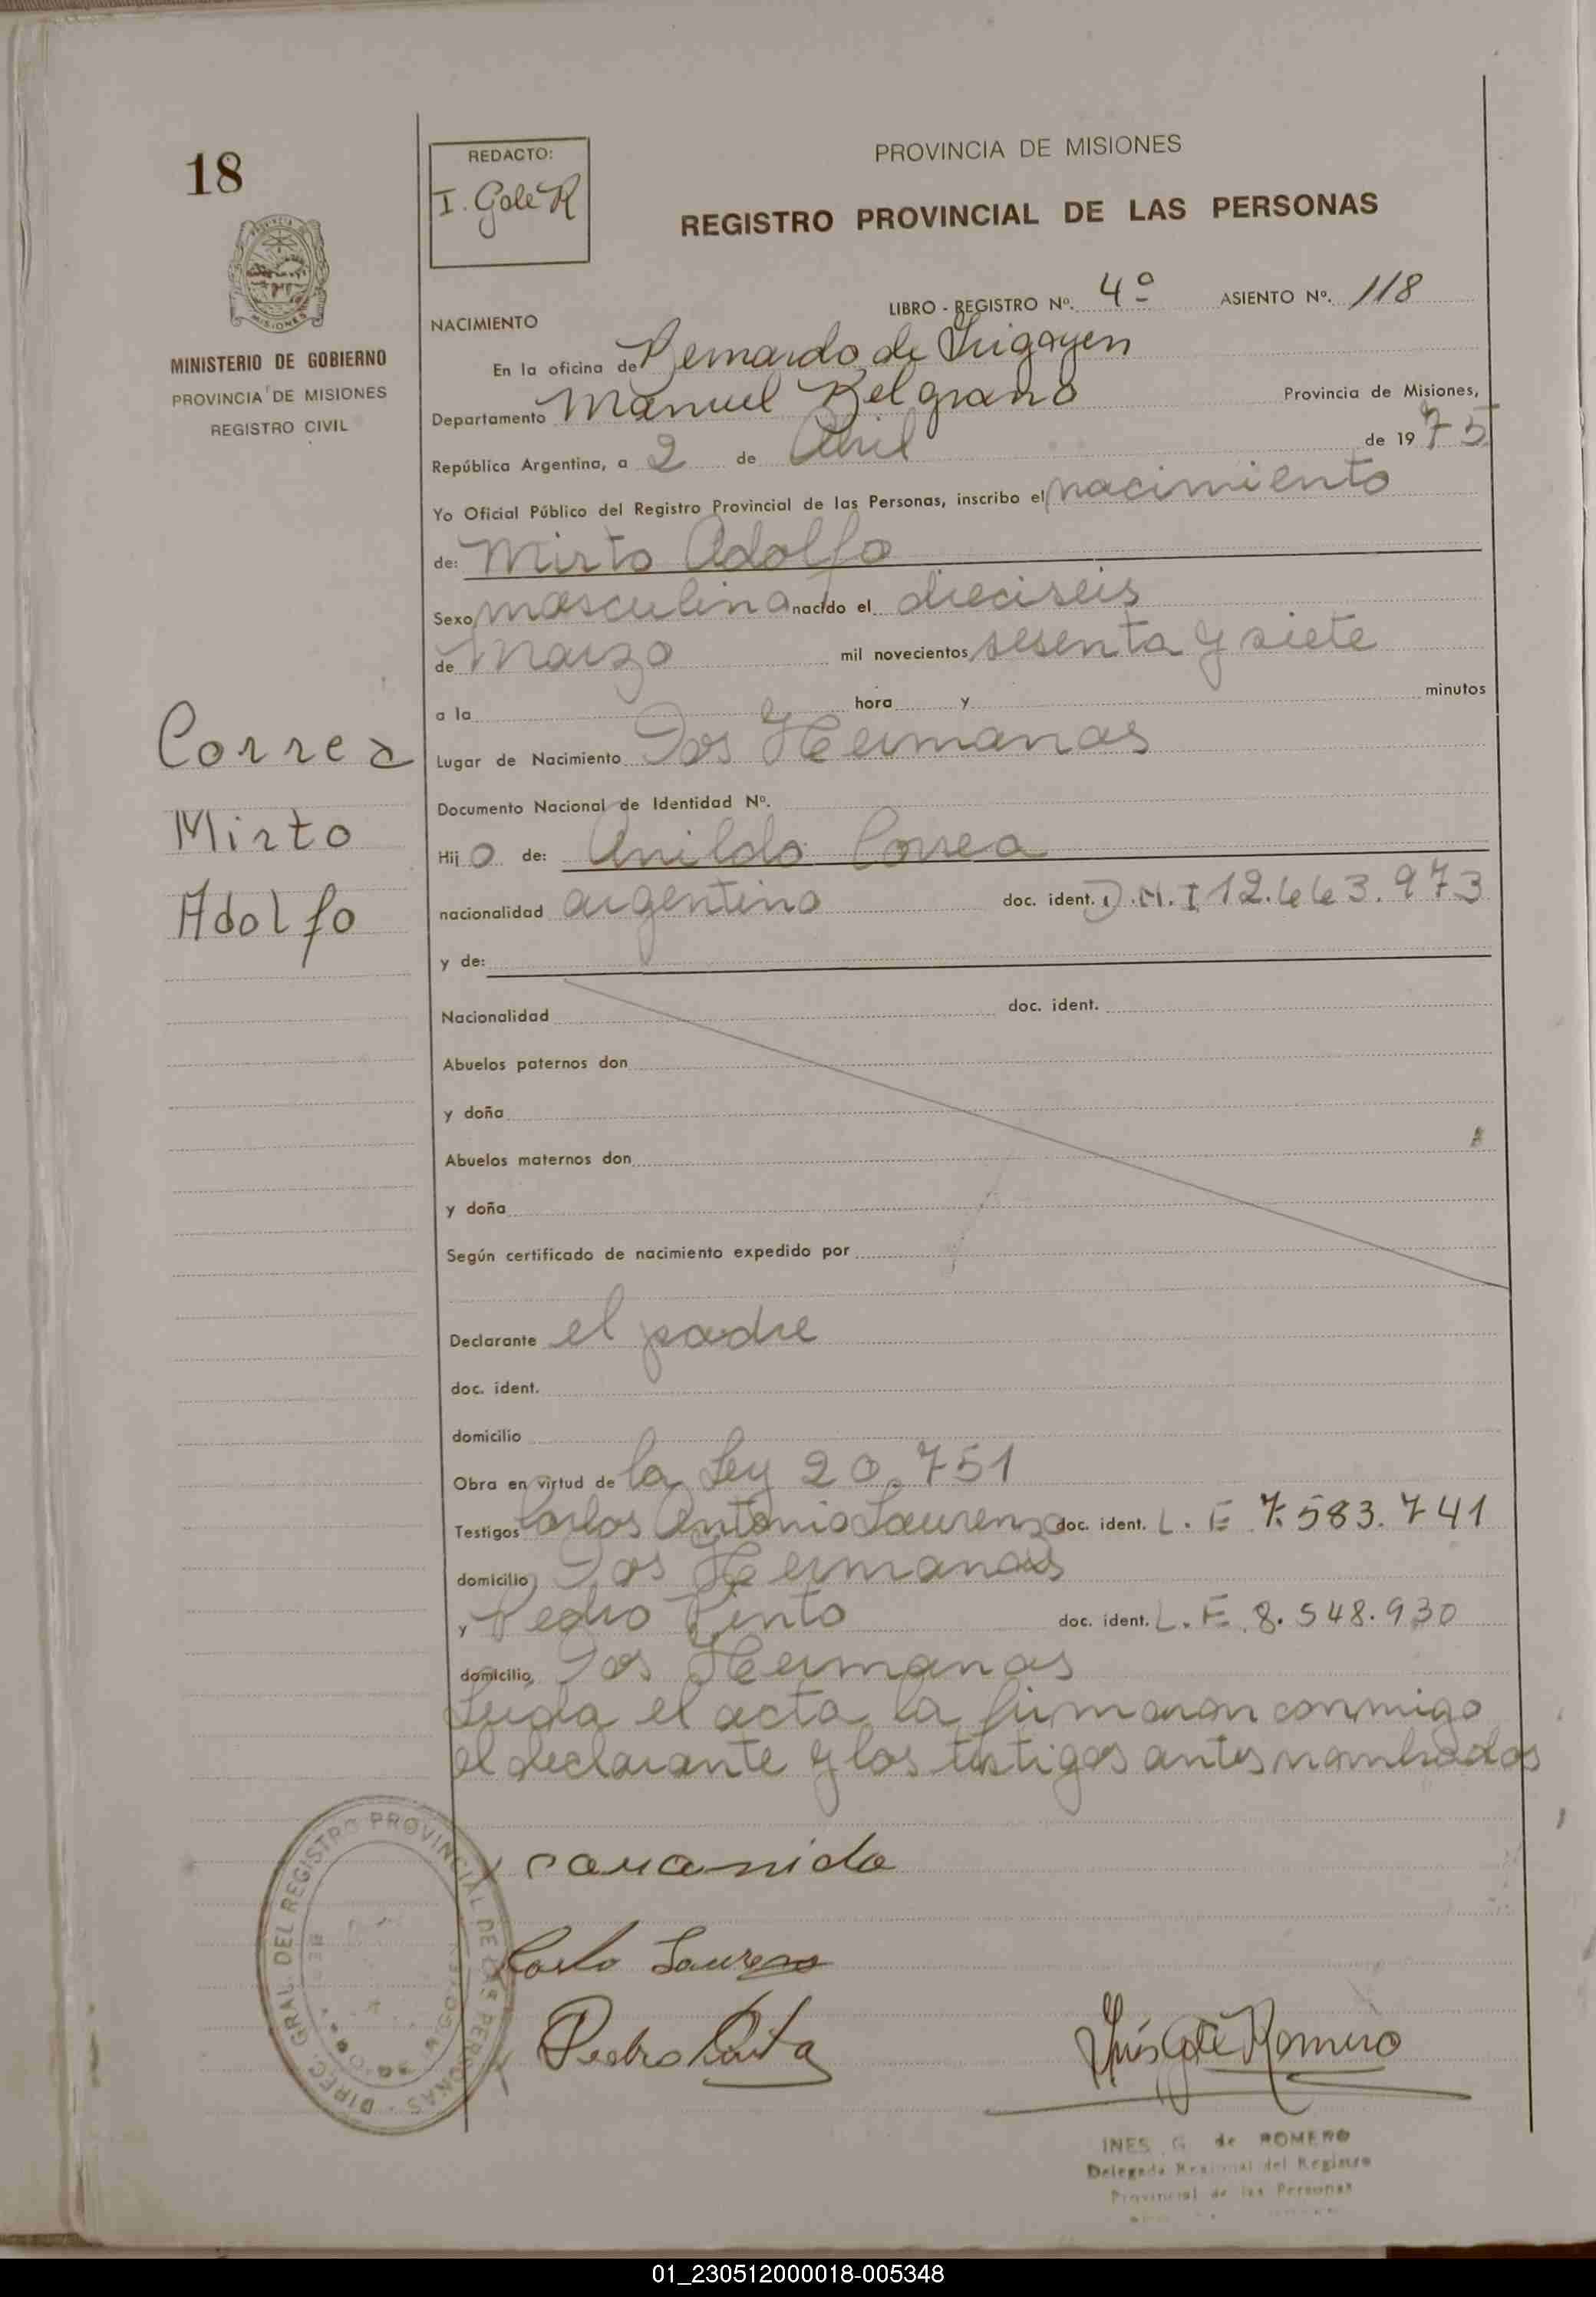 18
REDACTO:
I. Galé R
PROVINCIA DE MISIONES
REGISTRO PROVINCIAL DE LAS PERSONAS
MINISTERIO DE GOBIERNO
PROVINCIA DE MISIONES
REGISTRO CIVIL
LIBRO - REGISTRO Nº. 4º ASIENTO Nº. 118
NACIMIENTO
En la oficina de Bernardo de Irigoyen
Departamento Manuel Belgrano Provincia de Misiones,
República Argentina, a 2 de Abril de 1975
Yo Oficial Público del Registro Provincial de las Personas, inscribo el nacimiento
de: Mirto Adolfo
Sexo masculino nacido el dieciseis
de Marzo mil novecientos sesenta y siete
a la hora y minutos
Correa
Lugar de Nacimiento Dos Hermanas
Documento Nacional de Identidad Nº.
Mirto
Hijo de: Anildo Correa
Adolfo
nacionalidad argentino doc. ident. D.N.I 12.663.973
y de:
Nacionalidad doc. ident.
Abuelos paternos don
y doña
Abuelos maternos don
y doña
Según certificado de nacimiento expedido por
Declarante el padre
doc. ident.
domicilio
Obra en virtud de la Ley 20.751
Testigos Carlos Antonio Laurenzo doc. ident. L. E 7.583.741
domicilio Dos Hermanas
y Pedro Pinto doc. ident. L. E. 8.548.930
domicilio Dos Hermanas
Leida el acta la firmaran conmigo
el declarante y los testigos antes nombrados
DIREC. GRAL. DEL REGISTRO PROVINCIAL DE LAS PERSONAS
Pedro Pinto
Inés G. de Romero
INES G de ROMERO
Delegada Regional del Registro
Provincial de las Personas
01_230512000018-005348